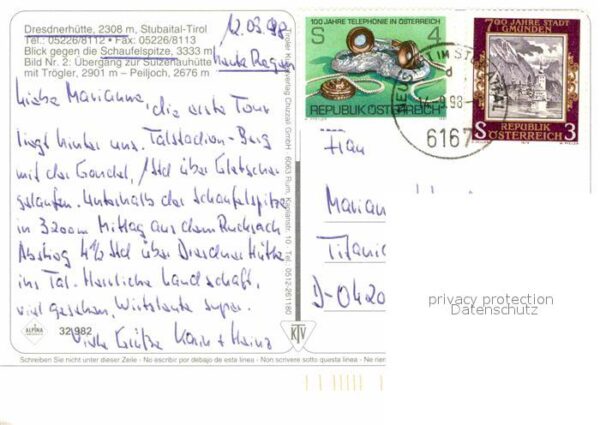 Dresdnerhütte, 2308 m, Stubaital-Tirol
Tel.: 05226/8112 • Fax: 05226/8113
Blick gegen die Schaufelspitze, 3333 m
Bild Nr. 2: Übergang zur Sulzenauhütte
mit Trögler, 2901 m – Peiljoch, 2676 m
12.09.98
heute Regen
Liebe Marianne, die erste Tour
liegt hinter uns. Talstation - Berg
mit der Gondel, 1 Std über Gletscher
gelaufen. Unterhalb der Schaufelspitze
in 3200m Mittag aus dem Rucksack
Abstieg 4½ Std über Dresdner Hütte
ins Tal. Herrliche Landschaft,
viel gesehen, Wirtsleute super.
Viele Grüße Karin + Heinz
ALPINA
32 982
Tiroler Kunstverlag Chizzali GmbH · 6063 Rum, Kaplanstr. 10 · Tel. 0512-261180
KTV
Schreiben Sie nicht unter dieser Zeile - No escribir por debajo de esta linea - Non scrivere sotto questa linea - Ne
100 JAHRE TELEPHONIE IN ÖSTERREICH
S 4
REPUBLIK ÖSTERREICH
700 JAHRE STADT
GMUNDEN
REPUBLIK
S ÖSTERREICH 3
NEUST IM STUBAITAL
14.9.98
6167
Frau
Marian
Titanic
D-0420
privacy protection
Datenschutz